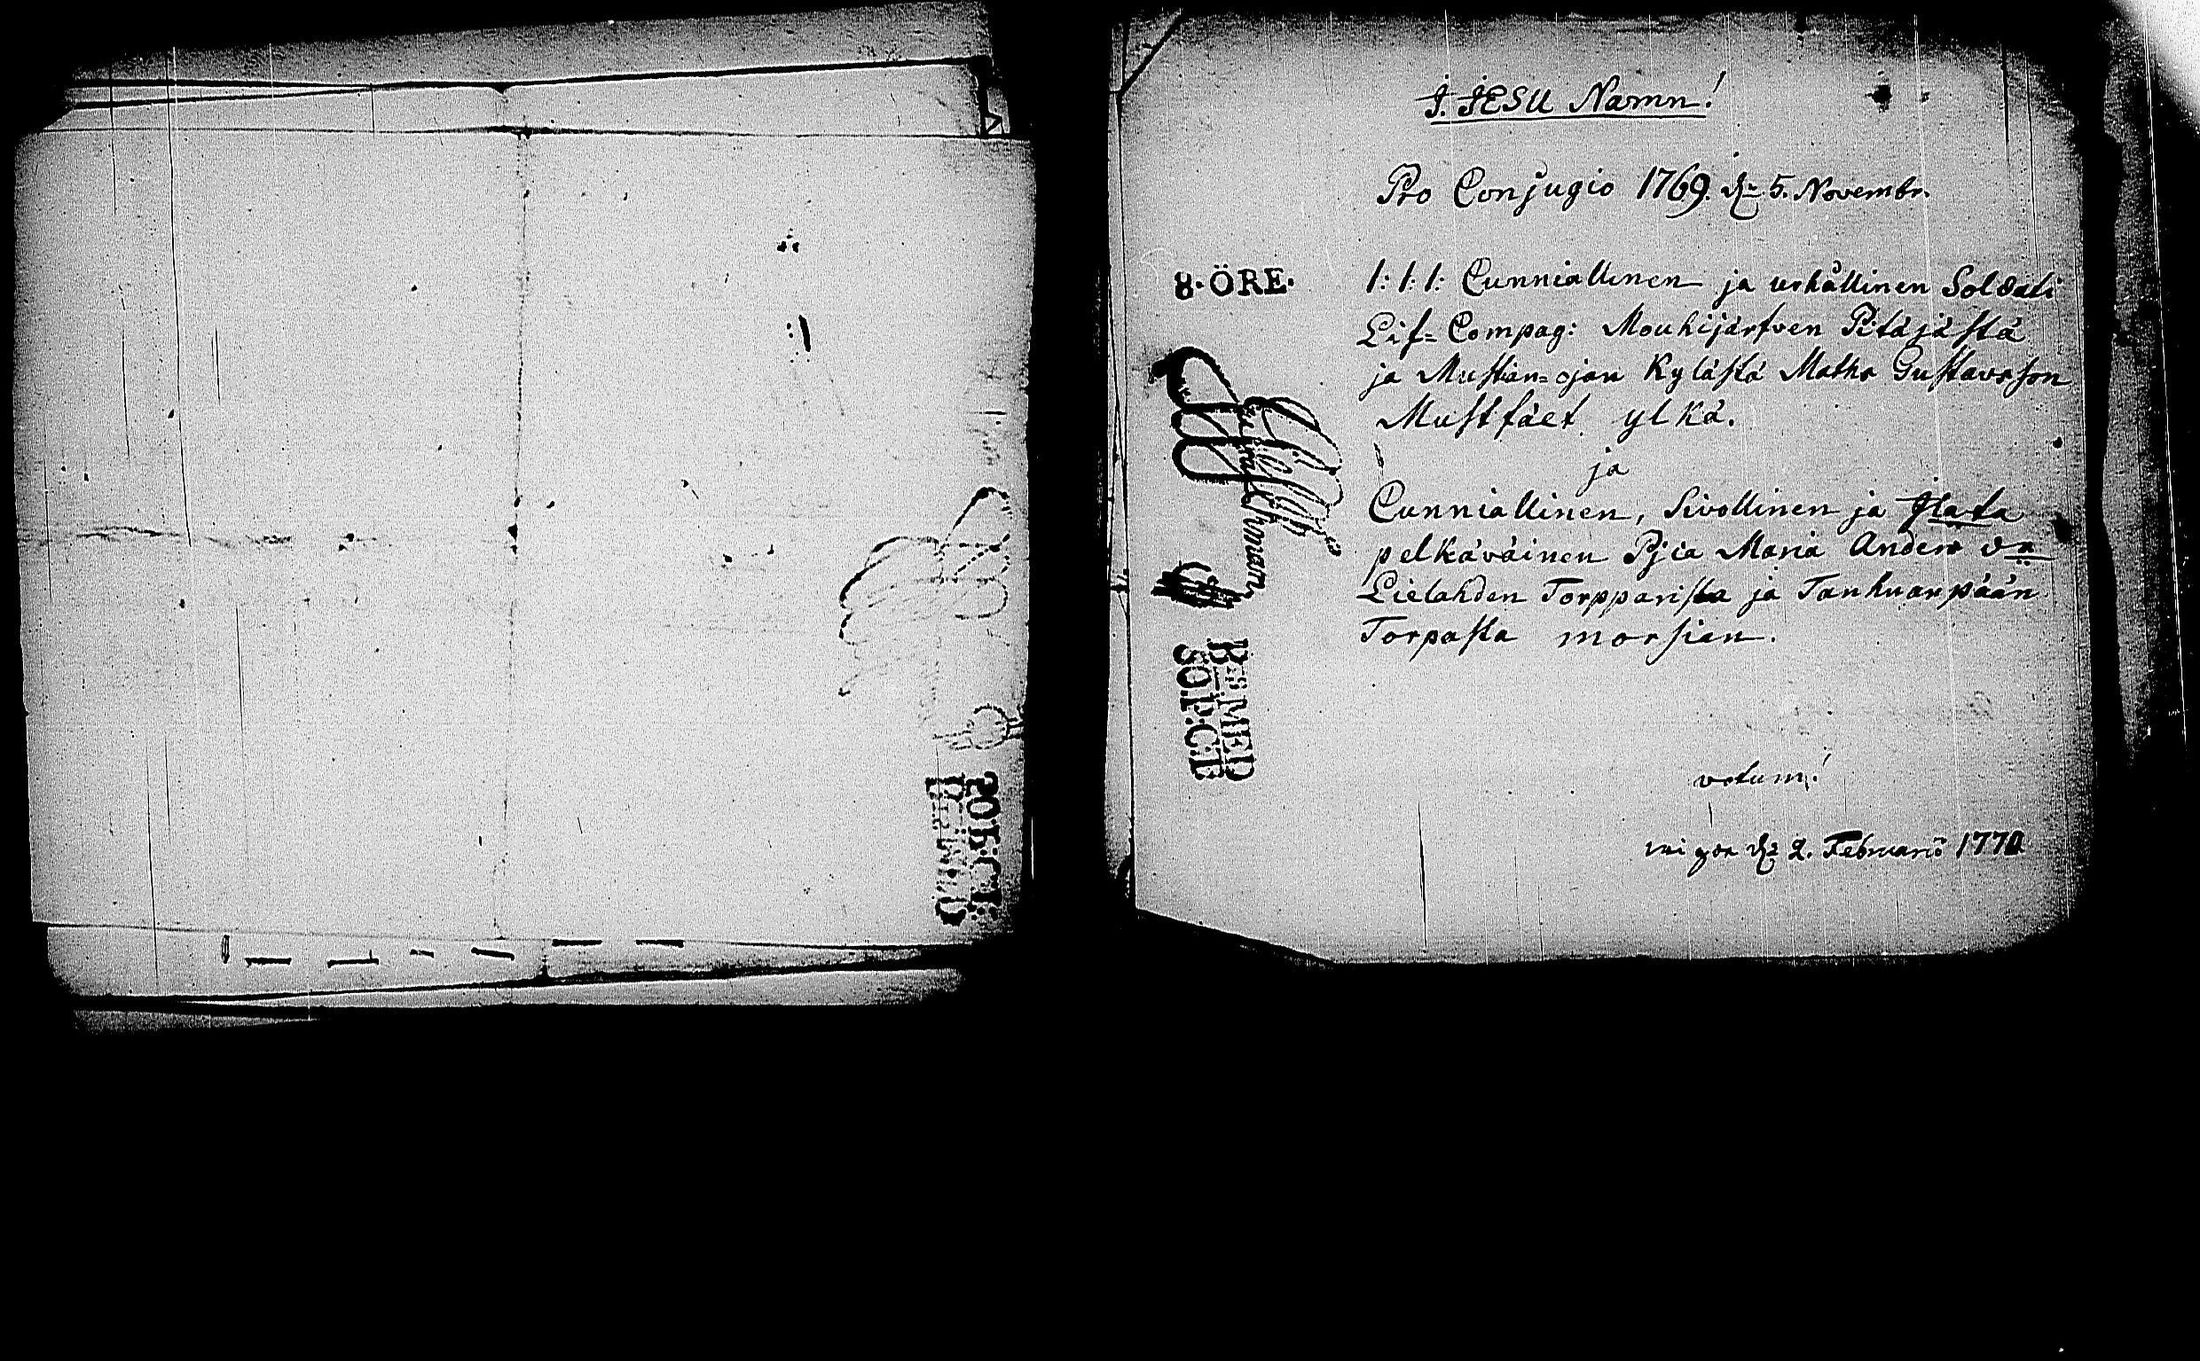 J. JESU Namn!
Pro Conjugio 1769. dn 5. Novembr.
8·ÖRE·
1: 1: 1: Cunniallinen ja urhållinen Soldati
Lif= Compag: Mouhijärfven Pitäjästä
ja Mustan=ojan Kylästä Maths Gustavsson
Mustfäet ylkä.
ja
Cunniallinen, Sivollinen ja
pelkäväinen Pjca Maria Anders dr
Lielahden Torpparista ja Tanhuanpään
Torpasta morsian.
votum!
2. Februarii 1770